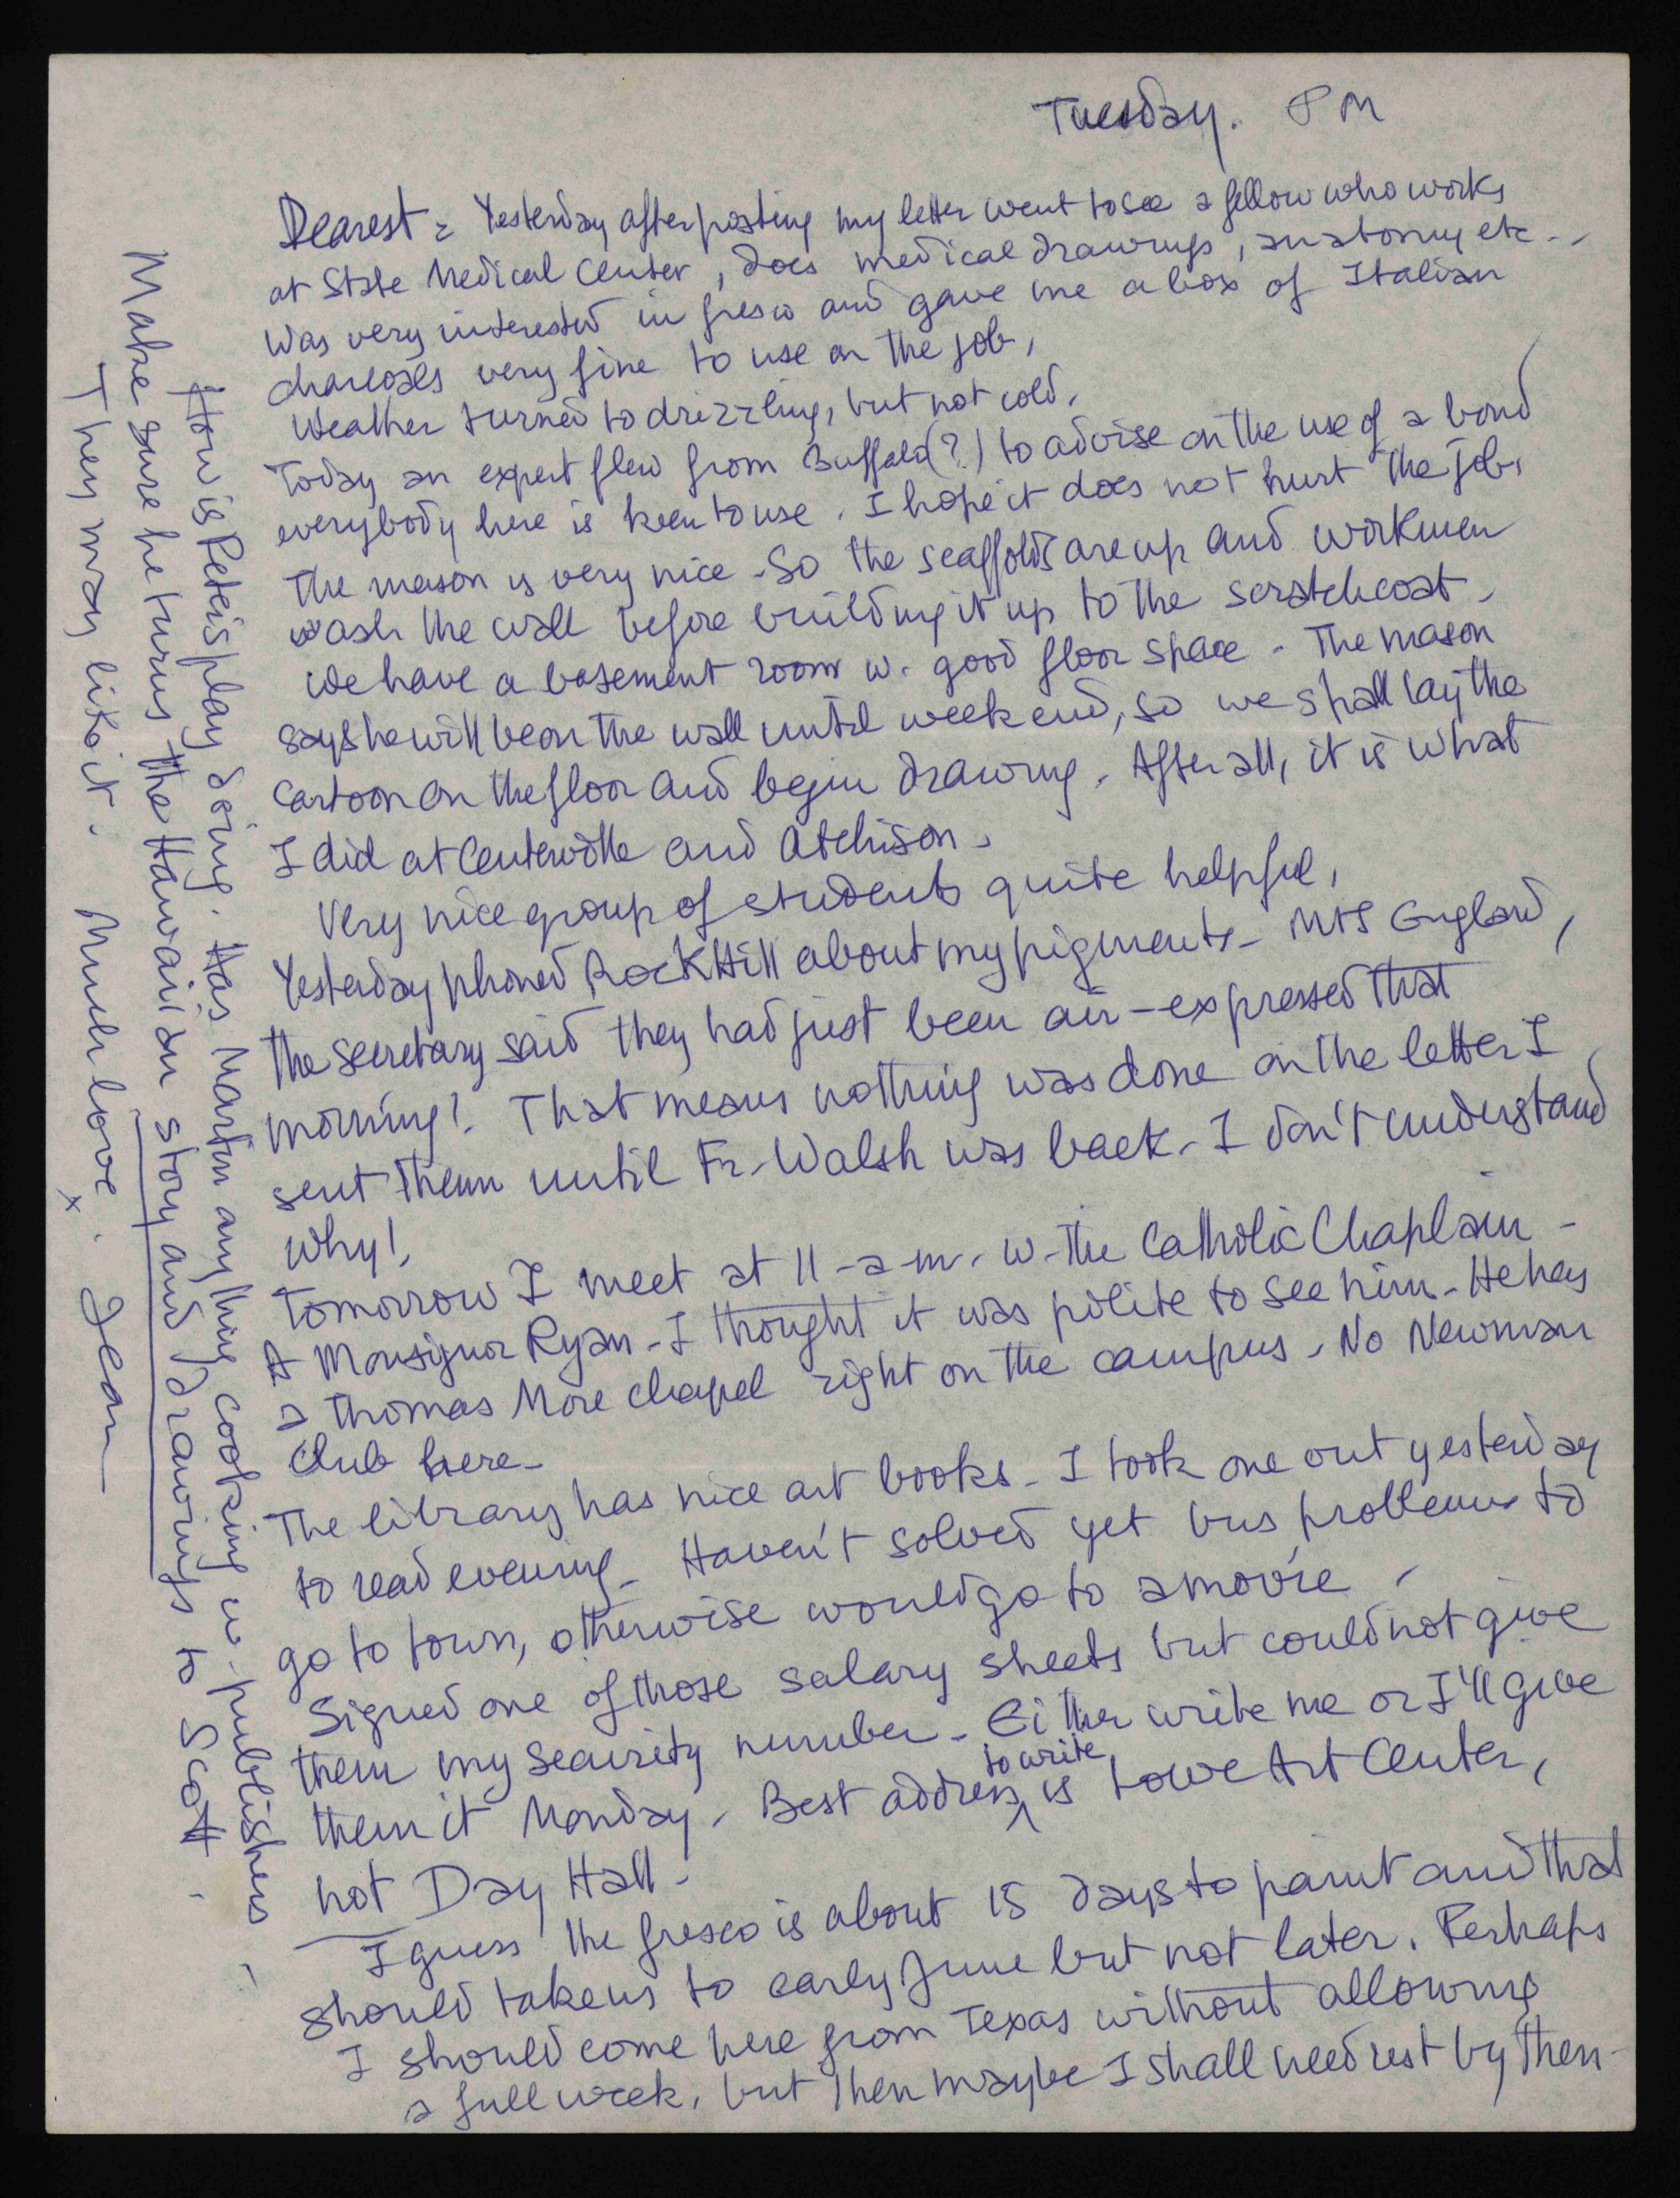 Tuesday. PM
Dearest = Yesterday after posting my letter went to see a fellow who works
at State Medical Center, does medical drawings, anatomy etc..
Was very interested in fresco and gave me a box of Italian
charcoals very fine to use on the job,
Weather turned to drizzling, but not cold.
Today an expert flew from Buffalo(?) to advise on the use of a bond
everybody here is keen to use. I hope it does not hurt the job.
The mason is very nice - So the scaffolds are up and workmen
wash the wall before building it up to the scratchcoat.
We have a basement room w. good floor space - The mason
says he will be on the wall until week end, so we shall lay the
cartoon on the floor and begin drawing. After all, it is what
I did at Centerville and Atchison.
Very nice group of students quite helpful,
Yesterday phoned Rock Hill about my pigments - Mrs England,
the secretary said they had just been air-expressed that
morning! That means nothing was done on the letter I
sent them until Fr. Walsh was back. I don't understand
why!
Tomorrow I meet at 11-a-m. w-the Catholic Chaplain -
A Monsignor Ryan - I thought it was polite to see him - He has
a Thomas More chapel right on the campus. No Newman
Club here -
The library has nice art books - I took one out yesterday
to read evening - Haven't solved yet bus problems to
go to town, otherwise would go to a movie.
Signed one of those salary sheets but could not give
them my security number - Either write me or I'll give
them it Monday - Best address to write is Lowe Art Center,
not Day Hall -
I guess the fresco is about 15 days to paint and that
should take us to early June but not later. Perhaps
I should come here from Texas without allowing
a full week, but then maybe I shall need rest by then -
How is Peter's play doing. Has Martin anything cooking w. publishers -
Make sure he turns the Hawaiian story and drawings to Scott.
They may like it. Much love. Jean
x